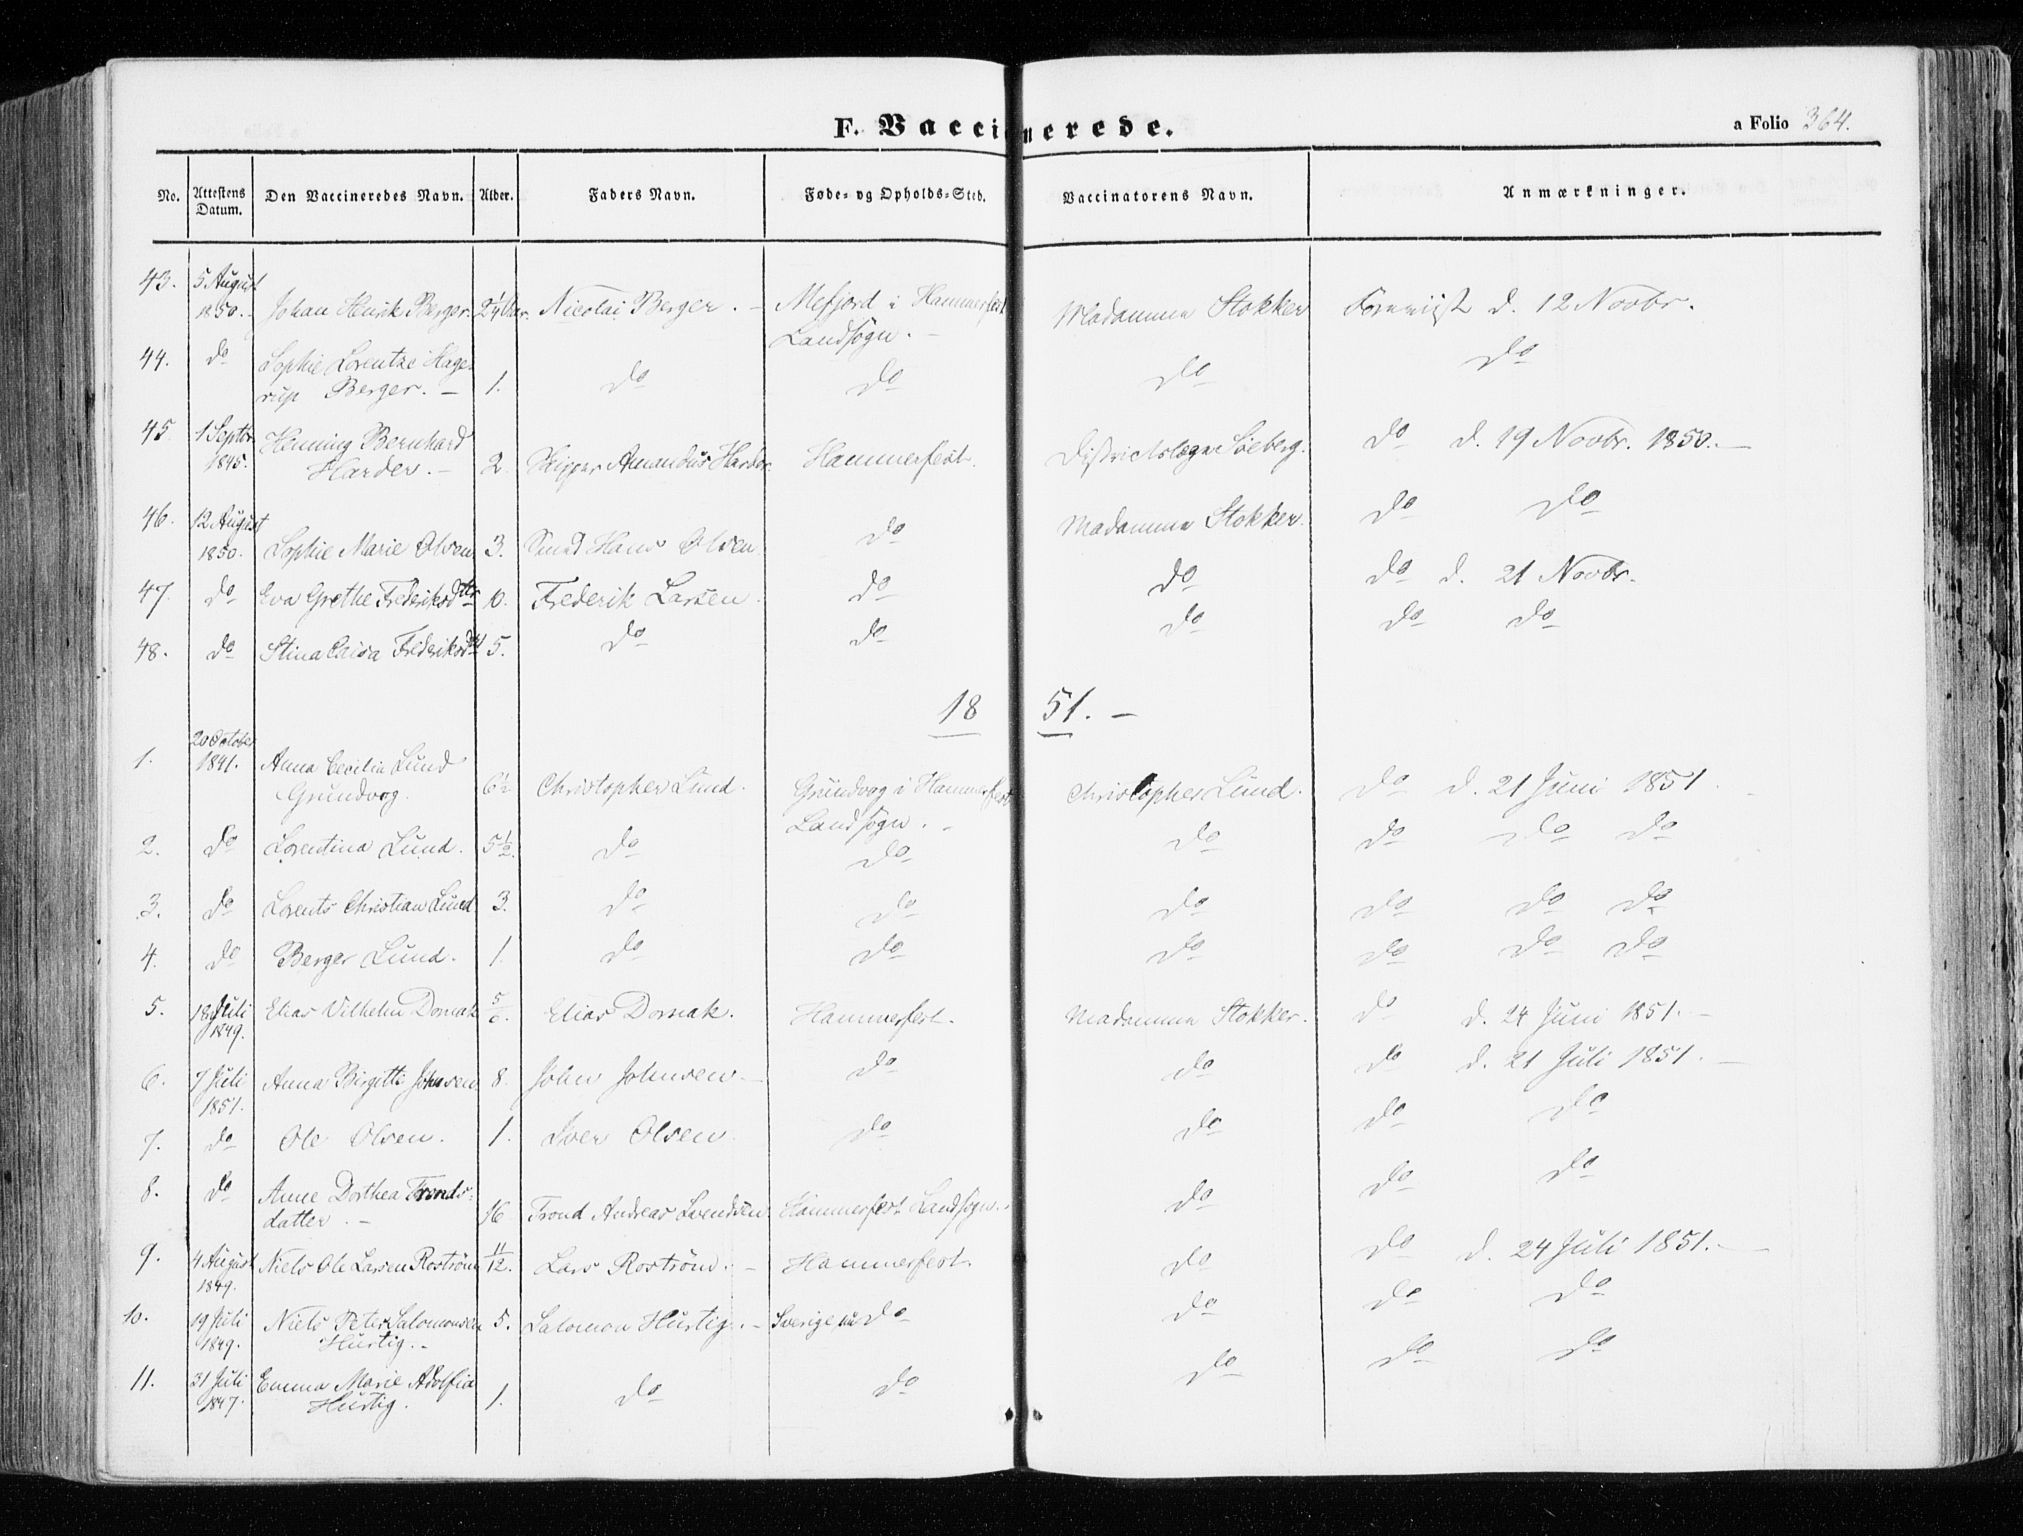 F. Vaccinerede.
a Folio 364.
No. Attestens Datum. Den Vaccineredes Navn. Alder. Faders Navn. Føde- og Opholds-Sted. Vaccinatorens Navn. Anmærkninger.
43. 5 August 1850. Johan Henrik Berger. 2 1/4 Aar. Nicolai Berger. – Mefjord i Hammerfest Landsogn. – Madamme Stokker Foreviist d. 12 Novbr.
44. do Sophie Lorentze Hagerup Berger. – 1. do do do do
45. 1 Septbr 1845. Henning Bernhard Harder. – 2. Skipper Amandus Harder Hammerfest. Districtslæge Söeberg. do d. 19 Novbr. 1850. –
46. 12 August 1850. Sophie Marie Olsen 3. Smed Hans Olsen. do Madamme Stokker. do do
47. do Eva Grethe Frederiksdtr 10. Frederik Larsen. do do do d. 21 Novbr.
48. do Stina Caisa Frideriksdtr 5. do do do do do
1851. –
1. 20 October 1841. Anna Cecilia Lund Grundvog. 6 1/2 Christopher Lund. Grundvog i Hammerfest Landsogn. – Christopher Lund. do d. 21 Juni 1851.
2. do Lorentina Lund. 5 1/2. do do do do do do
3. do Lorents Christian Lund 3. do do do do do do
4. do Berger Lund. 1. do do do do do do
5. 18 Juli 1849. Elias Vilhelm Domak 5/6. Elias Domak. Hammerfest. Madamme Stokker. do d. 24 Juni 1851. –
6. 7 Juli 1851. Anna Birgitte Johnsen 8. John Johnsen – do do do d. 21 Juli 1851. –
7. do Ole Olsen. 1. Iver Olsen. do do do do
8. do Anne Dorthea Tronds-datter. – 16 Trond Andreas Svendsen Hammerfest Landsogn. do do do
9. 4 August 1849. Niels Ole Larsen Roström 11/12. Lars Roström. – Hammerfest. do do d. 24 Juli 1851. –
10. 19 Juli 1849. Niels Peter Salomonsen Hurtig. – 5. Salomon Hurtig. – Sverige nu do do do do
11. 31 Juli 1847. Emma Marie Adolfia Hurtig. 1. do do do do do